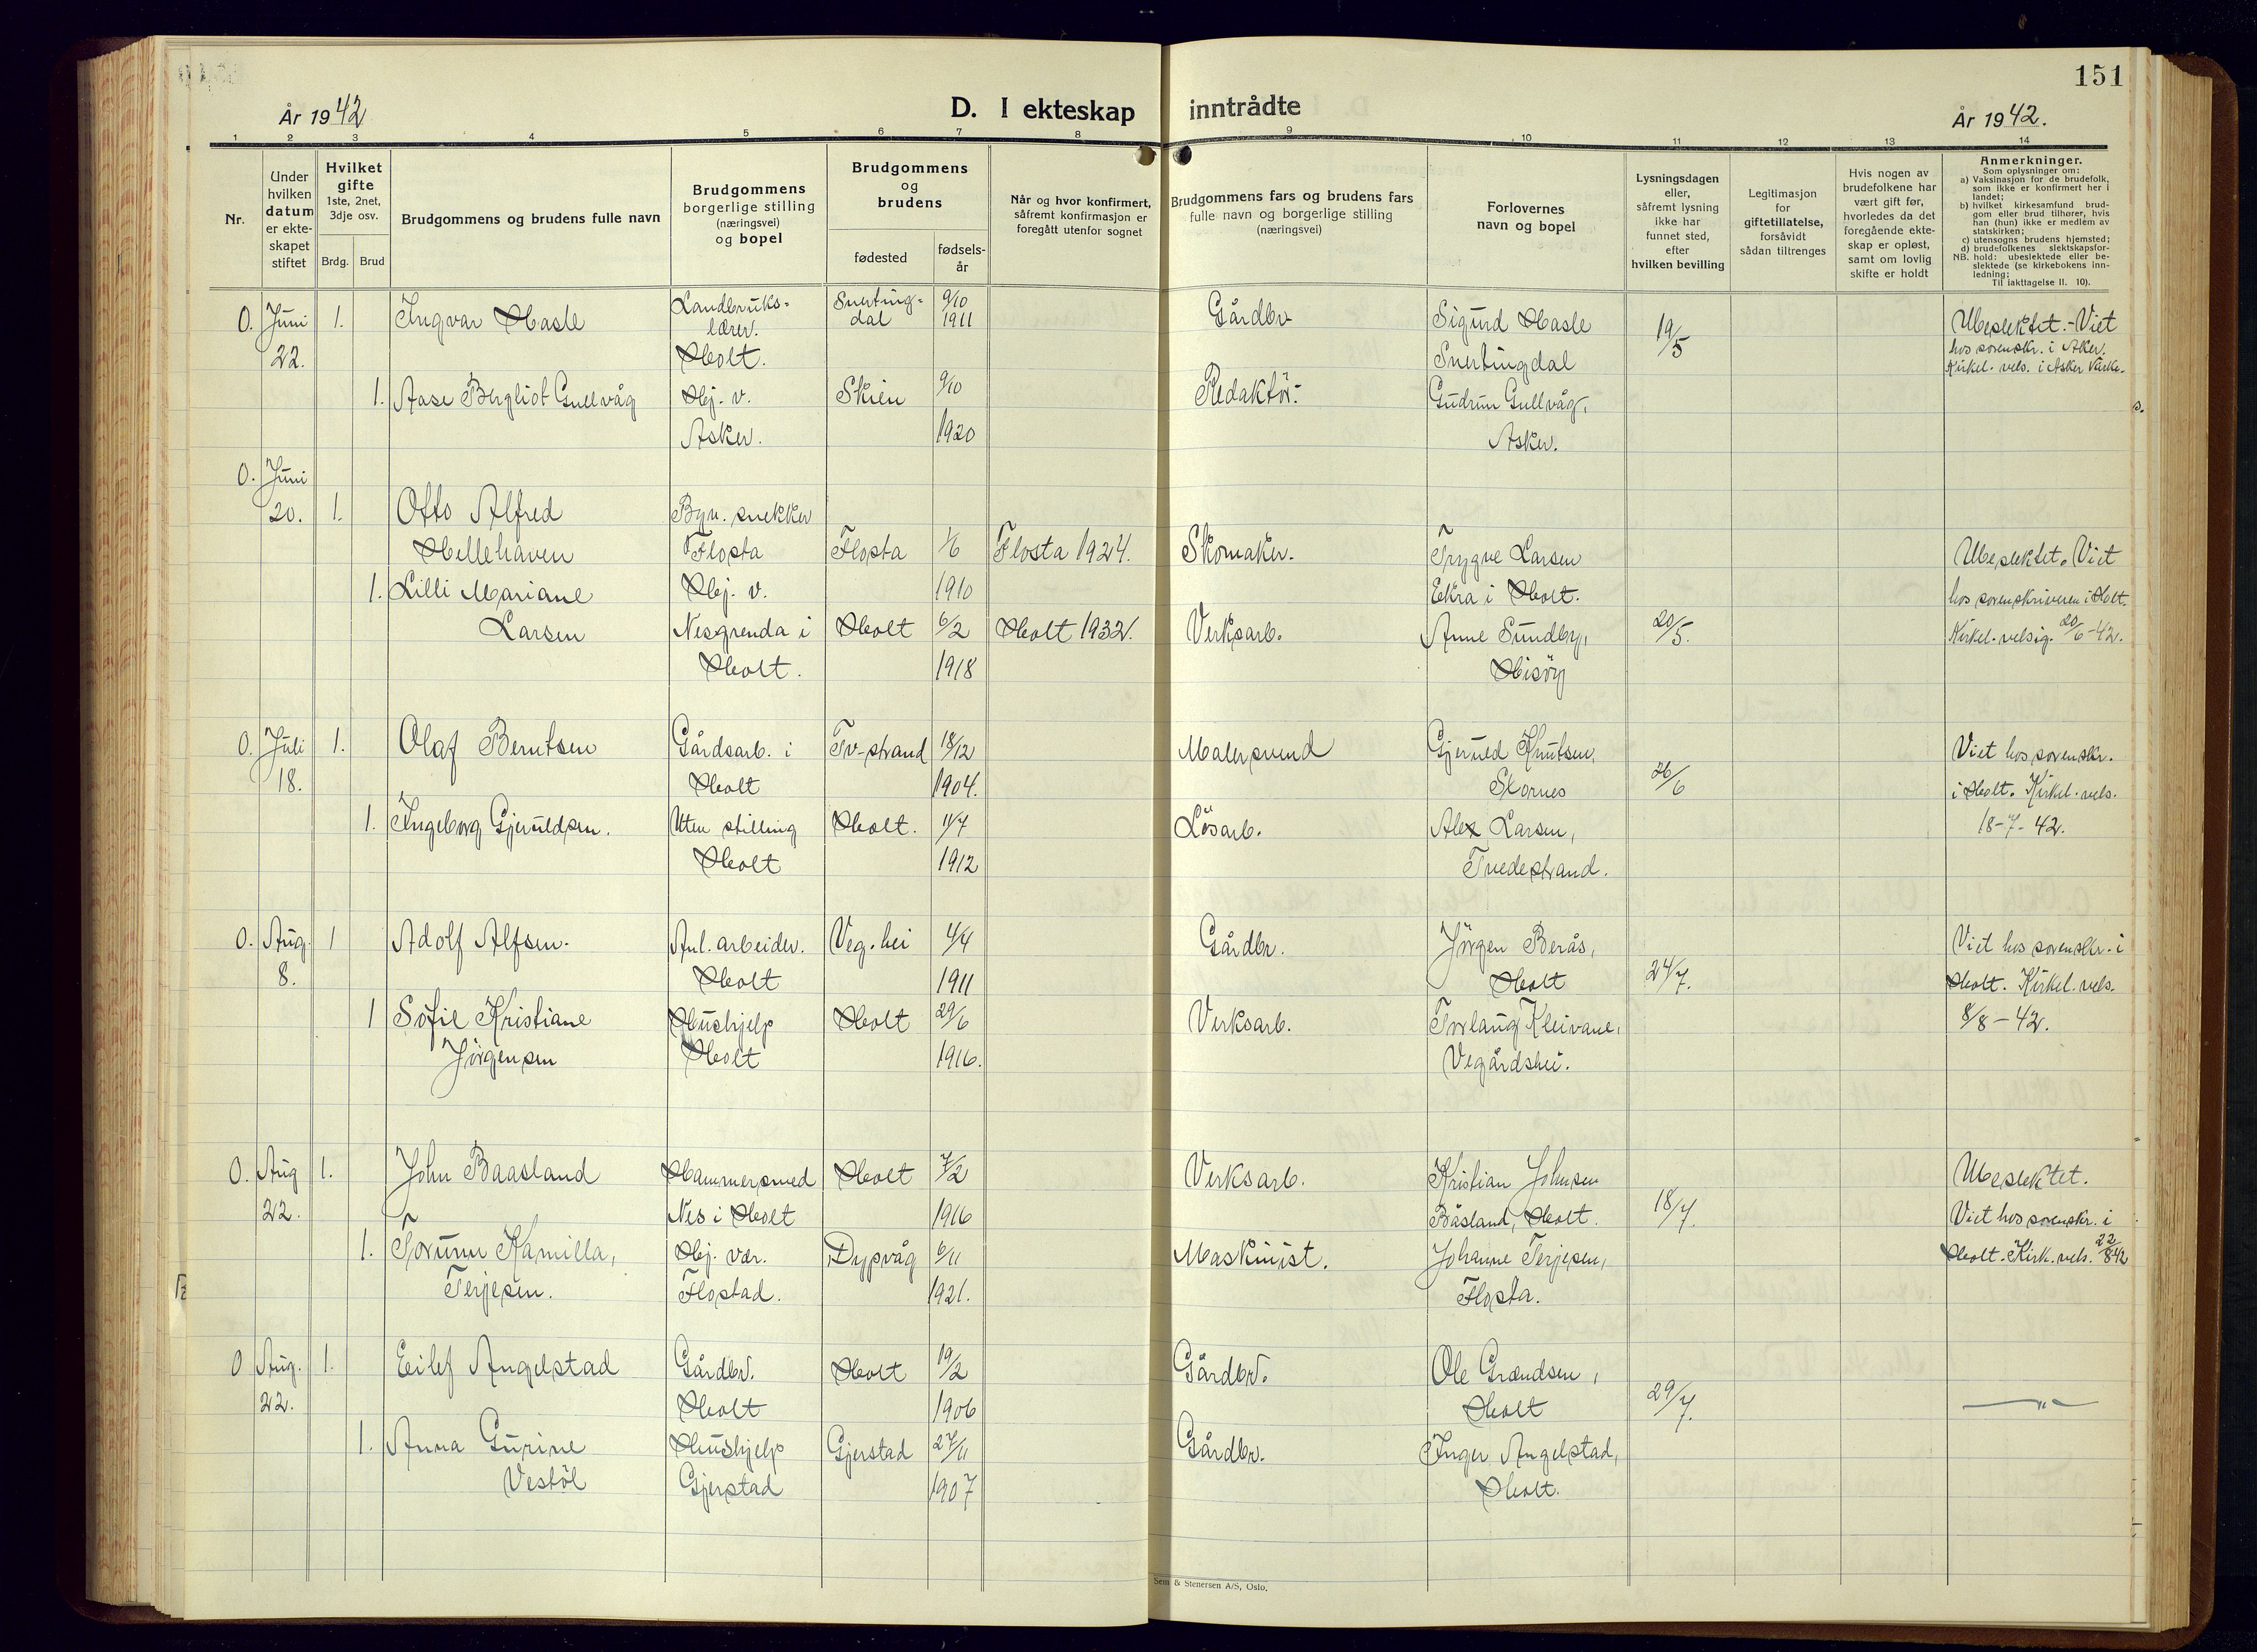 151
År 1942
D. I ekteskap inntrådte
År 1942.
1 2 3 4 5 6 7 8 9 10 11 12 13 14
Nr.
Under
hvilken
datum
er ekte-
skapet
stiftet
Hvilket
gifte
1ste, 2net,
3dje osv.
Brdg.
Brud
Brudgommens og brudens fulle navn
Brudgommens
borgerlige stilling
(næringsvei)
og bopel
Brudgommens
og
brudens
fødested
fødsels-
år
Når og hvor konfirmert,
såfremt konfirmasjon er
foregått utenfor sognet
Brudgommens fars og brudens fars
fulle navn og borgerlige stilling
(næringsvei)
Forlovernes
navn og bopel
Lysningsdagen
eller,
såfremt lysning
ikke har
funnet sted,
efter
hvilken bevilling
Legitimasjon
for
giftetillatelse,
forsåvidt
sådan tiltrenges
Hvis nogen av
brudefolkene har
vært gift før,
hvorledes da det
foregående ekte-
skap er opløst,
samt om lovlig
skifte er holdt
Anmerkninger.
Som oplysninger om:
a) Vaksinasjon for de brudefolk,
som ikke er konfirmert her i
landet;
b) hvilket kirkesamfund brud-
gom eller brud tilhører, hvis
han (hun) ikke er medlem av
statskirken;
c) utensogns brudens hjemsted;
d) brudefolkenes slektskapsfor-
NB. hold: ubeslektede eller be-
slektede (se kirkebokens inn-
ledning;
Til iakttagelse II. 10).
0. Juni 1. Ingvar Hasle Landbruks- Snerting- 9/10 Gårdbr Sigurd Hasle 19/5 Ubeslektet. - Viet
22. lærer. dal 1911 Snertingdal hos sorenskr. i Aker.
Holt. Kirkel. vels. i Asker kirke.
1. Aase Bergliot Gullvåg Hj. v. Skien 9/10 Redaktør. Gudrun Gullvåg,
Asker. 1920 Asker.
0. Juni
20. 1. Otto Alfred Byn. snekker
Hellehaven Flosta Flosta 1/6 Flosta 1924. Skomaker. Trygve Larsen Ubeslektet. Viet
1. Lilli Mariane Hj. v. 1910 Ekra i Holt. hos sorenskriveren i Holt.
Larsen Nesgrenda i Holt 6/2 Holt 1932. Verksarb. Anne Sundby, 20/5. Kirkel. velsig. 20/6-42.
Holt. 1918 Hisöy
0. Juli 1. Olaf Berntsen Gårdsarb. i Tv-strand 18/12 Malersvend Gjeruld Knutsen, 26/6 Viet hos sorenskr.
18. Holt 1904. Skornes i Holt. Kirkel. vels.
1. Ingeborg Gjeruldsen. Uten stilling Holt. 11/7 Løsarb. Alex Larsen, 18-7-42.
Holt 1912 Tvedestrand.
0. Aug. 1 Adolf Alfsen. Anl. arbeider. Veg. hei 4/4 Gårdbr. Jörgen Berås, Viet hos sorenskr. i
8. Holt 1911 Holt 24/7. Holt. Kirkel. vels.
1 Sofie Kristiane Hushjelp Holt 29/6 Verksarb. Torlaug Kleivane, 8/8-42.
Jörgensen Holt 1916. Vegårdshei.
0. Aug 1. John Baasland Hammersmed Holt 7/2 Verksarb. Kristian Johnsen Ubeslektet.
22. Nes i Holt 1916 Båsland, Holt. 18/7. Viet hos sorenskr. i
1. Torunn Kamilla, Hj. vær. Dypvåg 6/11 Maskinist. Johanne Terjesen, Holt. Kirk. vels. 22/8 42
Terjesen. Flostad. 1921. Flosta.
0 Aug. 1. Eilef Angelstad Gårdbr. Holt 19/2 Gårdbr. Ole Grændsen, 29/7. — " —
22. Holt 1906 Holt
1. Anna Gurine Hushjelp Gjerstad 27/11 Gårdbr. Inger Angelstad,
Vestöl Gjerstad 1907 Holt.
Sem & Stenersen A/S, Oslo.